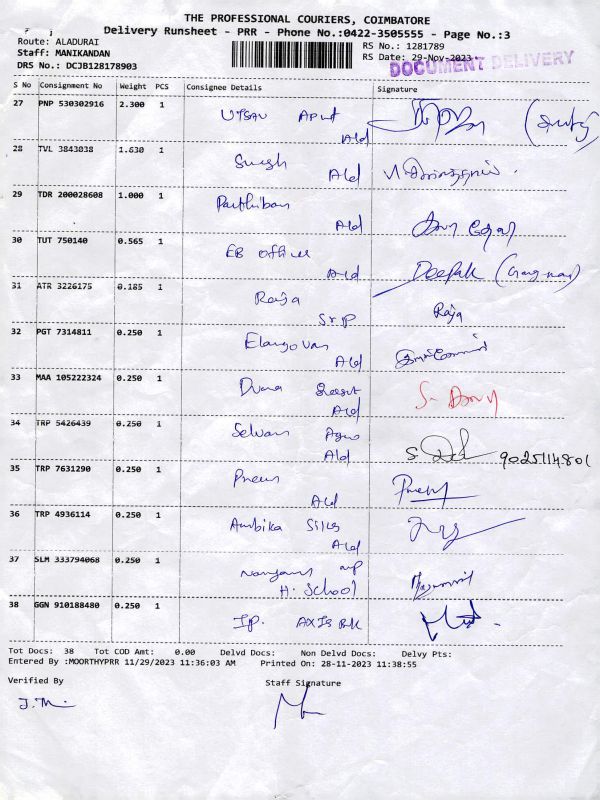 THE PROFESSIONAL COURIERS, COIMBATORE
Delivery Runsheet - PRR - Phone No.:0422-3505555 - Page No.:3
Route: ALADURAI
RS No.: 1281789
Staff: MANIKANDAN
RS Date: 29-Nov-2023
DRS No.: DCJB128178903
DOCUMENT DELIVERY
S No Consignment No Weight PCS Consignee Details Signature
27 PNP 530302916 2.300 1
Ald
28 TVL 3843038 1.630 1 Suresh
Ald
29 TDR 200028608 1.000 1 Parthiban
Ald
30 TUT 750140 0.565 1 EB office
Ald Deepak
31 ATR 3226175 0.185 1 Raja
Srp Raja
32 PGT 7314811 0.250 1 Elangovan
Ald
33 MAA 105222324 0.250 1
Ald
34 TRP 5426439 0.250 1 Selvam Agro
Ald 9025114801
35 TRP 7631290 0.250 1
Ald
36 TRP 4936114 0.250 1 Ambika Silks
Ald
37 SLM 333794068 0.250 1
H. School
38 GGN 910188480 0.250 1 AXIS Bk
Tot Docs: 38 Tot COD Amt: 0.00 Delvd Docs: Non Delvd Docs: Delvy Pts:
Entered By :MOORTHYPRR 11/29/2023 11:36:03 AM Printed On: 28-11-2023 11:38:55
Verified By Staff Signature